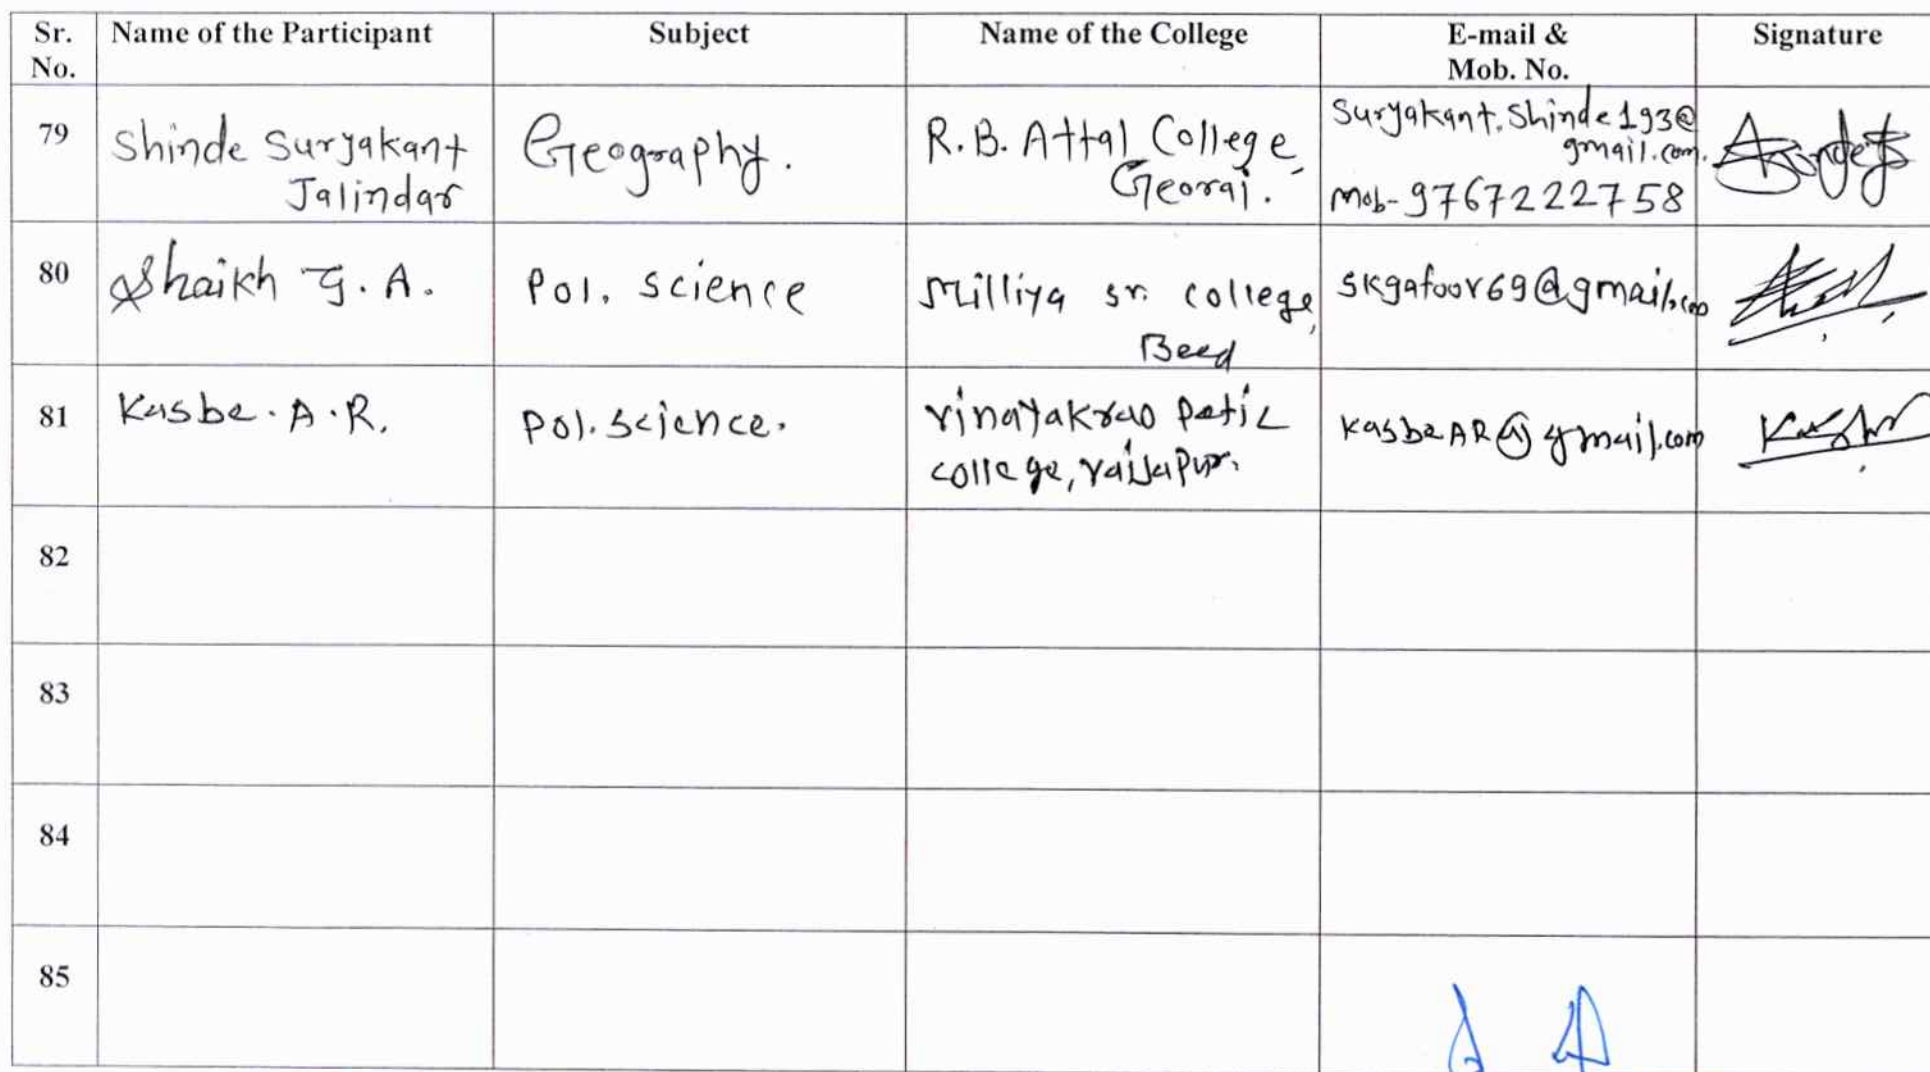 Sr. No. Name of the Participant Subject Name of the College E-mail & Mob. No. Signature
79 Shinde Suryakant Jalindar Geography. R.B. Attal College, Georai. Suryakant.Shinde193@gmail.com. Mob- 9767222758
80 Shaikh G. A. Pol. Science Milliya sr. college, Beed skgafoor69@gmail.com
81 Kasbe. A. R. Pol. Science. Vinayakrao Patil college, Vaijapur. KasbeAR@gmail.com
82
83
84
85